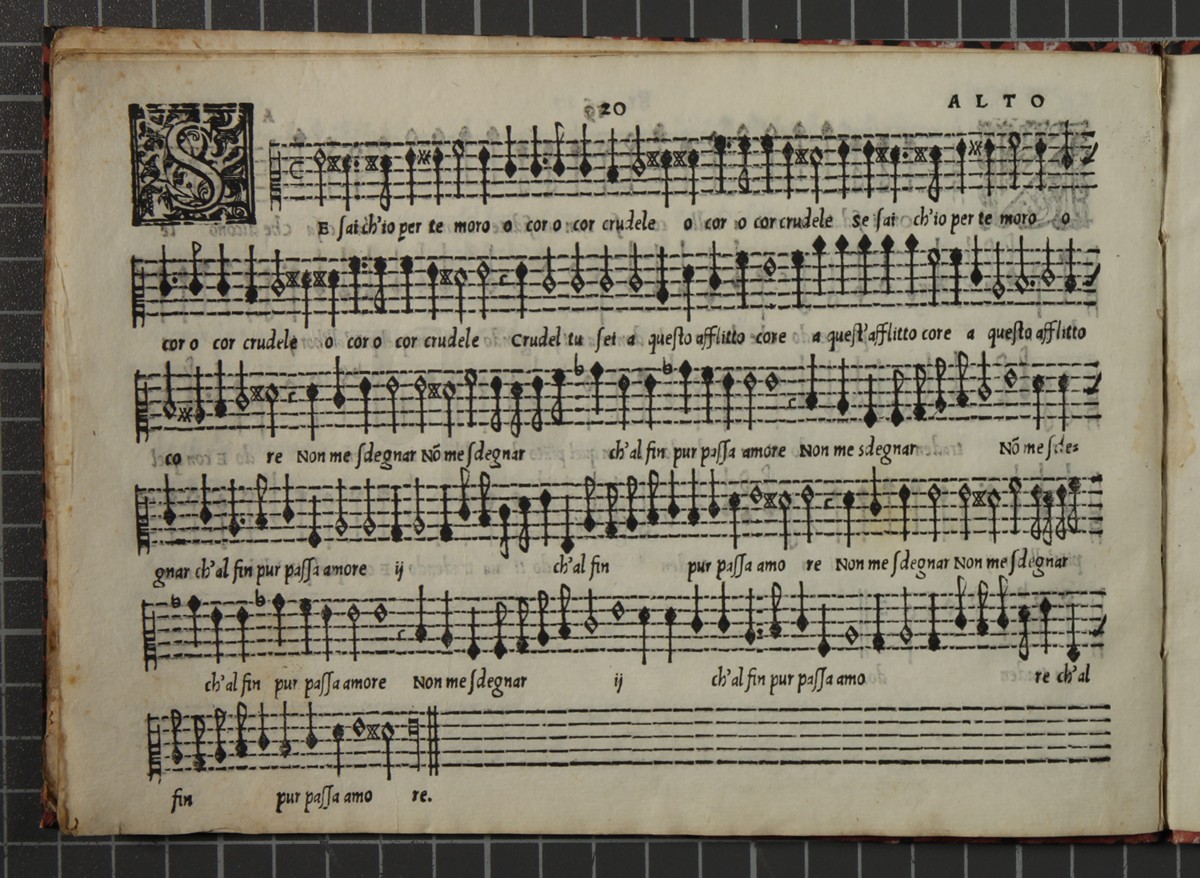 20
ALTO
SE sai ch'io per te moro o cor o cor crudele o cor o cor crudele Se sai ch'io per te moro o
cor o cor crudele o cor o cor crudele Crudel tu sei a questo afflitto core a quest'afflitto core a questo afflitto
co re Non me sdegnar Nõ me sdegnar ch'al fin pur passa amore Non me sdegnar Nõ me sdes=
gnar ch'al fin pur passa amore ij ch'al fin pur passa amo re Non me sdegnar Non me sdegnar
ch'al fin pur passa amore Non me sdegnar ij ch'al fin pur passa amo re ch'al
fin pur passa amo re.